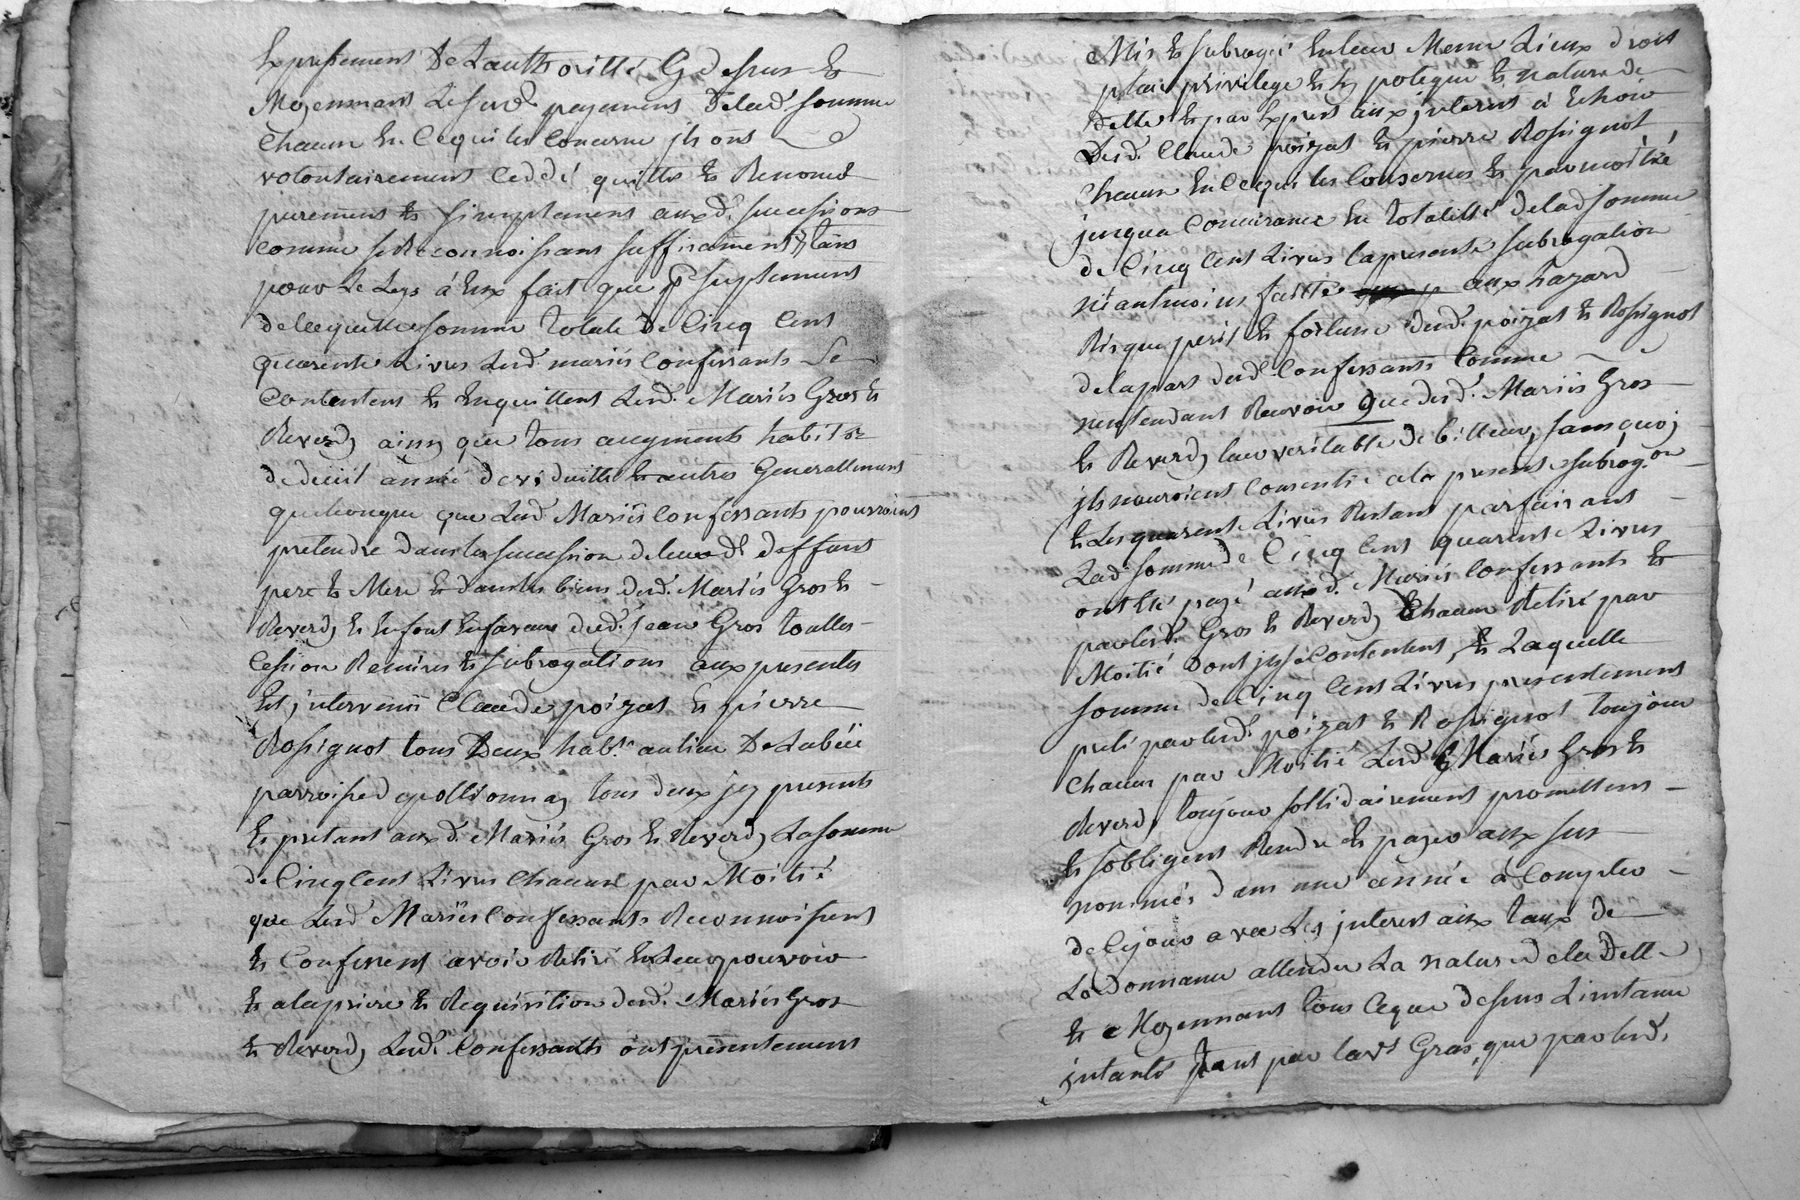 Expressement De Lauthoritté Cy dessus Et
Moyennant Le susd payement Delad. somme
Chacun En Cequi les Concerne jls ont
volontairement Ceddé quitté Et Renoncé
purement Et simplement auxd. successions
comme se Reconnoissans suffisament
pour Le Legs á Eux fait que supplement
delaquelle somme totale De Cinq Cent
quarente Livres Lesd. mariés Confessants Se
Contentent Et Enquittent Lesd. Mariés Gros Et
Reverdy ainsy que tous augments habit
de deüil année de viduitté Et autres Generallement
quelconque que Lesd. Mariés Confessants pourroient
pretendre dans la succession de leurd. deffunt
pere Et Mere Et dans les biens desd. Mariés Gros Et
Reverdy Et En font En faveur dud. jean Gros toutte
Cession Remises Et subrogations aux presentes
Est jntervenü Claude poizat Et pierre
Rossignot tous Deux habt. au lieu De Labéü
parroisse d apollionnay tous deux jcy presents
Et pretant auxd. Mariés Gros Et Reverdy La somme
de Cinq Cent Livres Chacun par Moitié
que Lesd Mariés Confessants Reconnoissent
Et Confessent avoir Retiré En Leur pouvoir
Et a la priere Et Requisition desd. Mariés Gros
Et Reverdy Lesd. Confessants ont presentement
Mis Et subrogé En leur Meme Lieux droit
place privilege Et hypoteque Et nature de
dette Et par Exprest aux jnterest á Echoir
Lesd. Claude poizat Et pierre Rossignot
Chacun En Ce qui les Consernes Et par moitié
jusqua Concurance En totalitté de lad somme
de Cinq Cent Livres la presente subrogation
néantmoins faitte aux hazard
Risque peril Et fortune desd. poizat Et Rossignot
de la part desd Confessants Comme
nentendant Recevoir que desd. Mariés Gros
Et Reverdy leur veritable debitteur, sans quoj
jls nauroient Consentie a la presente subrog.on
Et Les quarente Livres Restant parfaisant
Lad. somme de Cinq Cent quarente Livres
ont Eté payé auxd. Mariés Confessants Et
par lesd. Gros Et Reverdy Chacun Retiré par
Moitié dont jls se Contentent, Et Laquelle
somme de Cinq Cent Livres presentement
preté par lesd. poizat Et Rossignot toujour
Chacun par Moitié Lesd Mariés Gros Et
Reverdy toujour sollidairement promettent
Et sobligent Rendre Et payer aux sus
nommés dans une année á Compter
de Ce jour avec Les jnterest aux taux de
Lordonnance attendu La nature de la Dette
Et Moyennant tous Ceque dessus Linstance
jntanté tant par lad. Gros, que par lesd.